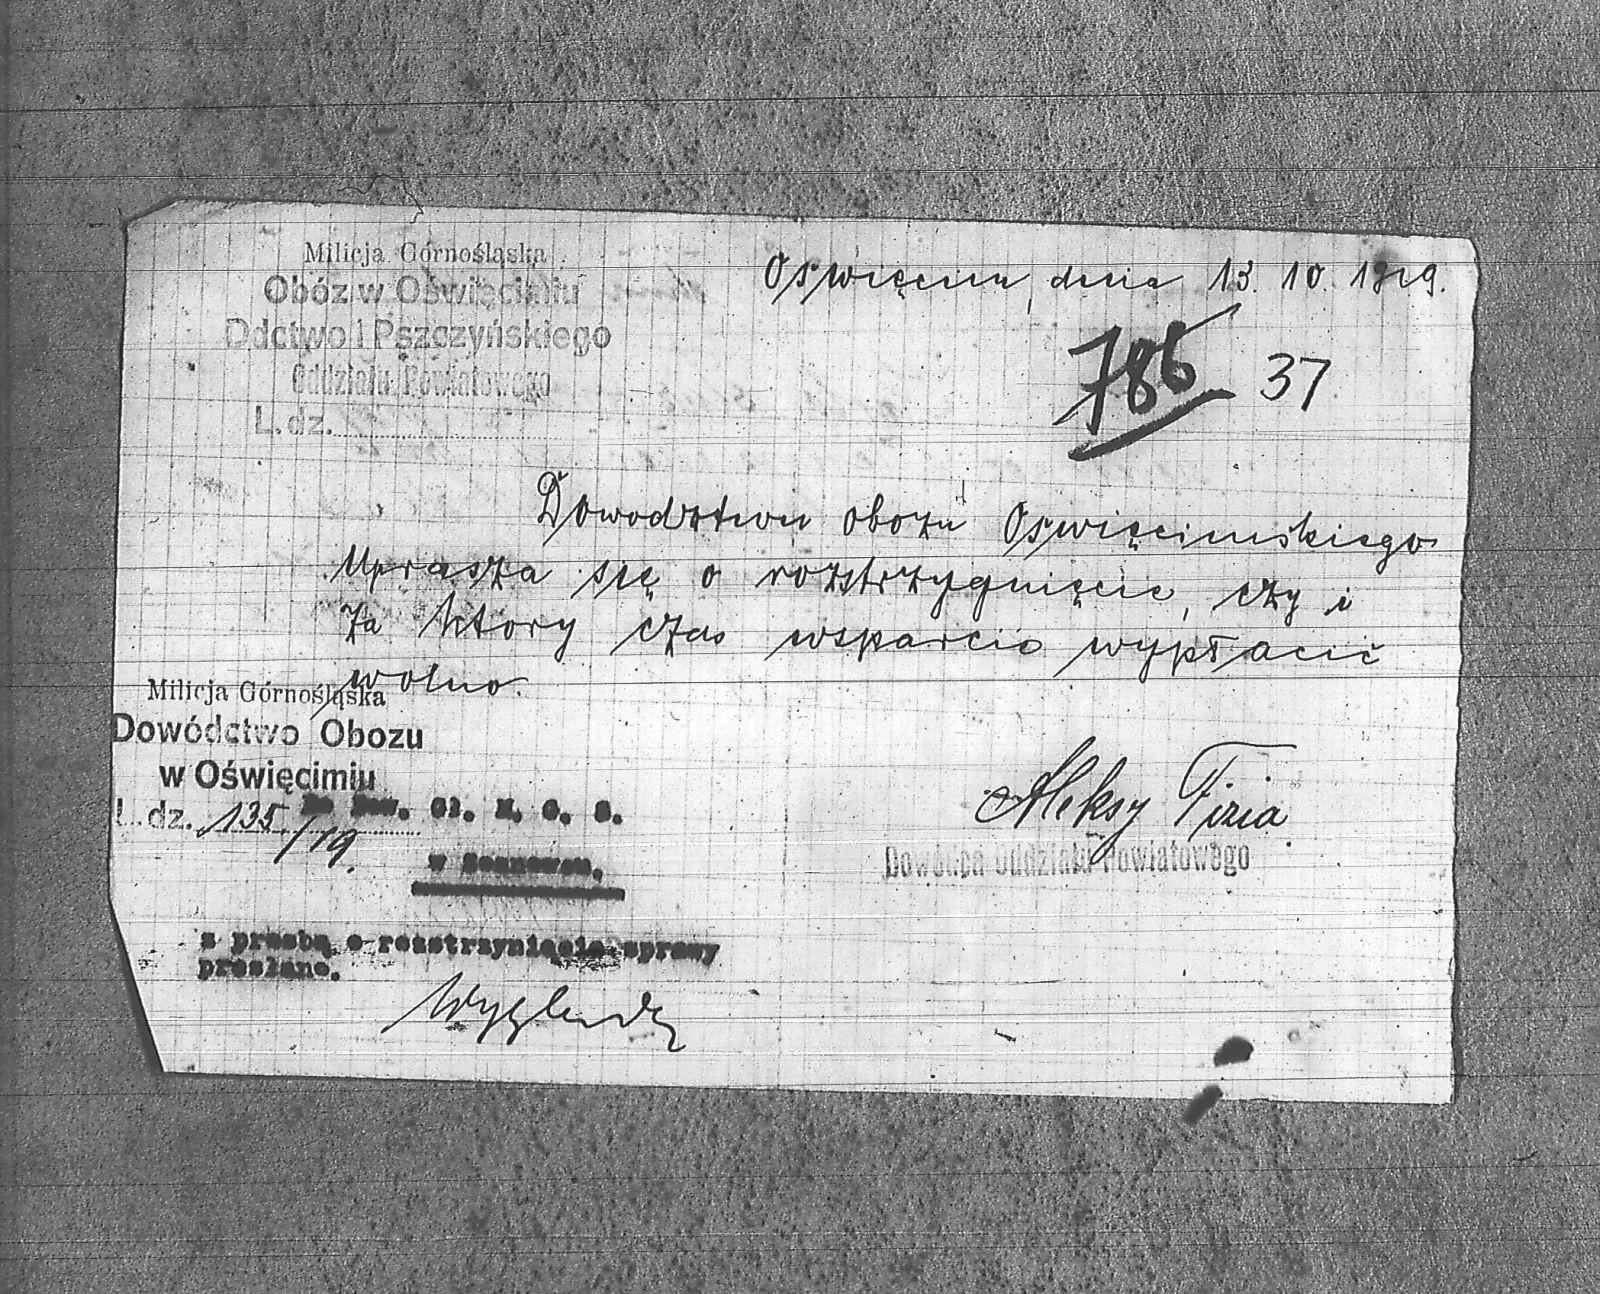 Milicja Górnośląska
Obóz w Oświęcimiu
Ddctwo I Pszczyńskiego
Oddziału Powiatowego
L. dz.
Oświęcim, dnia 13. 10. 1919.
786 37
Dowodztwu obozu Oświęcimskiego
Uprasza się o rozstrzygnięcie, czy i
za ktory czas wsparcie wypłacić
wolno.
Milicja Górnośląska
Dowództwo Obozu
w Oświęcimiu
L. dz. 135/19.
Do Dow. Gł. M. G. S.
w Sosnowcu.
Aleksy Fizia
Dowódca Oddziału Powiatowego
z prośbą o rozstrzynięcie sprawy
przesłano.
Wyglenda